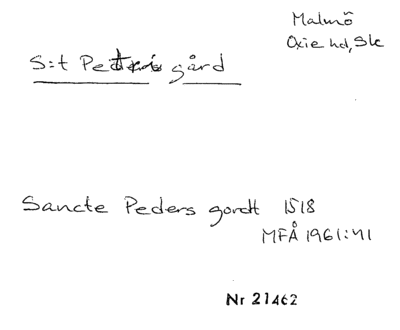 Malmö
Oxie hd, Sk
S:t Petri gård
Sancte Peders gordt 1518
MFÅ 1961:41
Nr 21462